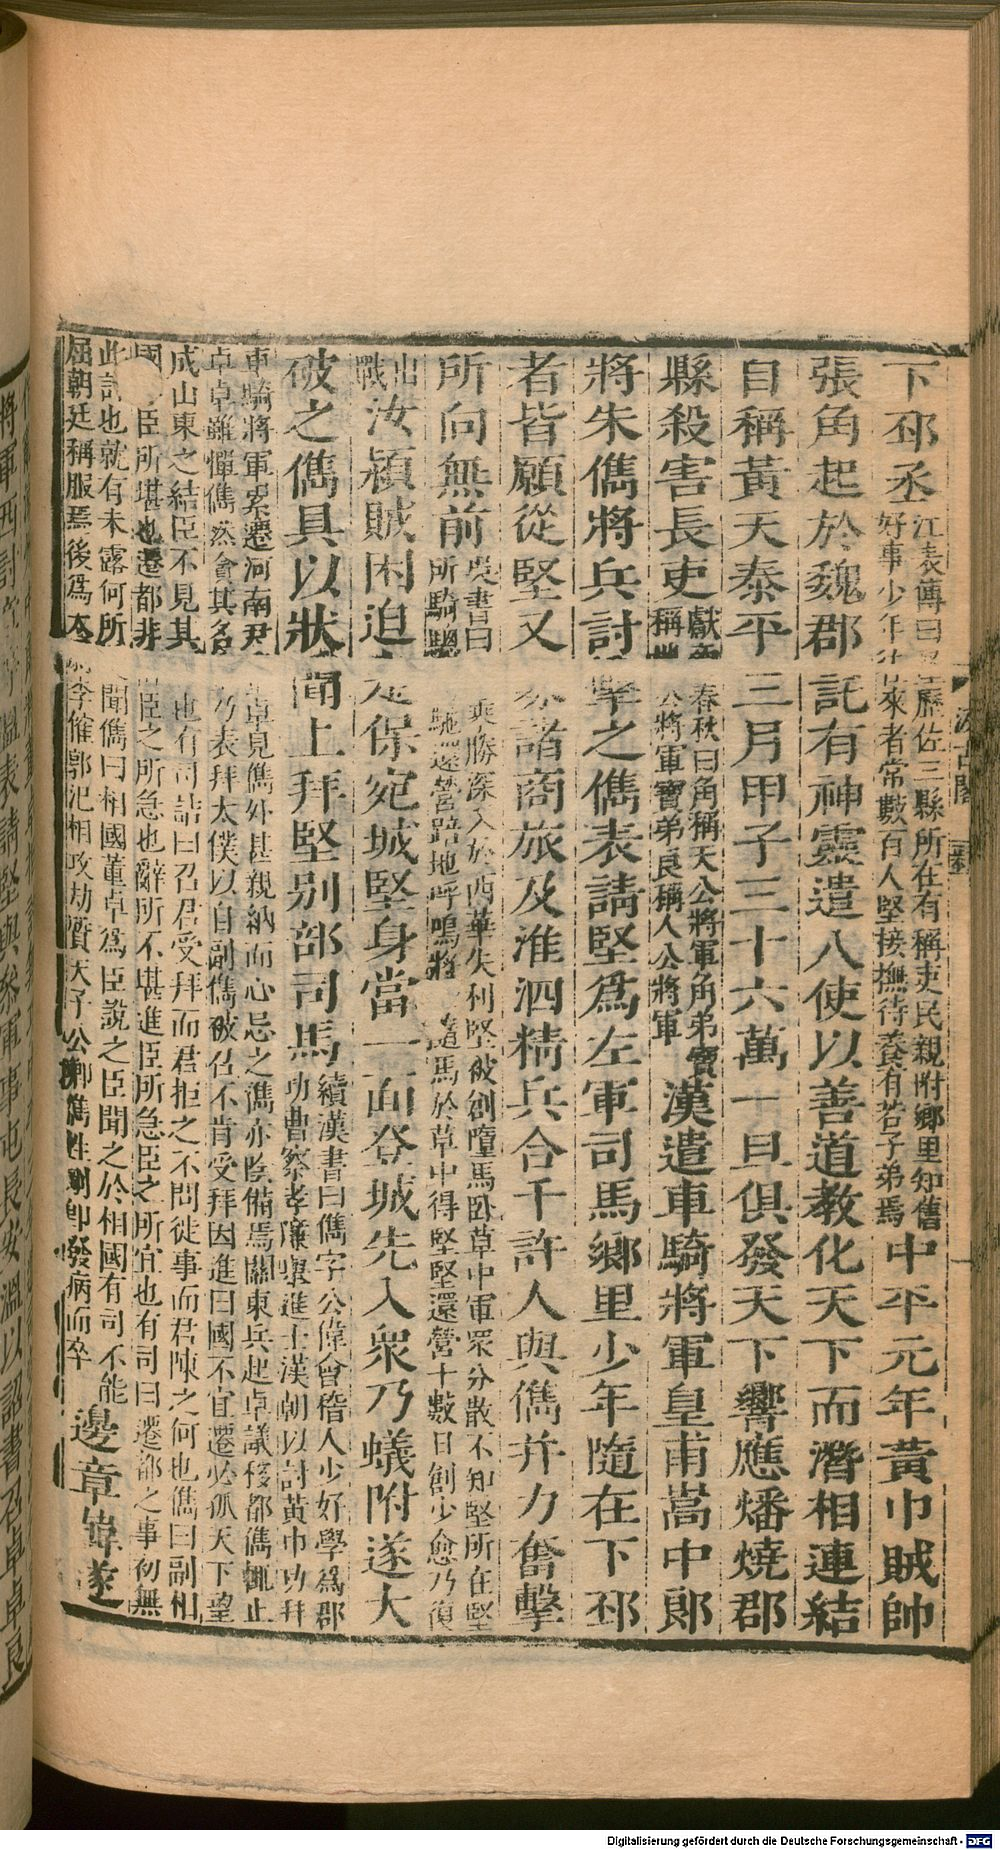 下邳丞
江表傳曰
歷佐三縣所在有稱吏民親附鄉里知舊
好事少年
來者常數百人堅接撫待養有若子弟焉
中平元年黃巾賊帥
張角起於魏郡託有神靈遣八使以善道教化天下而潛相連結
自稱黃天泰平三月甲子三十六萬一旦俱發天下響應燔燒郡
縣殺害長吏
獻
春秋曰角稱天公將軍角弟寶
稱
公將軍寶弟良稱人公將軍
漢遣車騎將軍皇甫嵩中郎
將朱儁將兵討擊之儁表請堅爲左軍司馬鄉里少年隨在下邳
者皆願從堅又募諸商旅及淮泗精兵合千許人與儁并力奮擊
所向無前
吳書曰
乘勝深入於西華失利堅被創墮馬臥草中軍眾分散不知堅所在堅
所騎驄
馳還營踣地呼鳴將
隨馬於草中得堅堅還營十數日創少愈乃復
出
戰
汝潁賊困迫
保宛城堅身當一面登城先入衆乃蟻附遂大
破之儁具以狀聞上拜堅别部司馬
續漢書曰儁字公偉會稽人少好學爲郡
功曹察孝廉舉進士漢朝以討黃巾功拜
車騎將軍累遷河南尹
卓見儁外甚親納而心忌之儁亦陰備焉關東兵起卓議移都儁輒止
卓卓雖憚儁然貪其名
乃表拜太僕以自副儁被召不肯受拜因進曰國不宜遷必孤天下望
成山東之結臣不見其
也有司詰曰召君受拜而君拒之不問徙事而君陳之何也儁曰副相
國
臣所堪也遷都非
臣之所急也辭所不堪進臣所急臣之所宜也有司曰遷都之事初無
此計也就有未露何所
聞儁曰相國董卓爲臣說之臣聞之於相國有司不能
屈朝廷稱服焉後爲太
李傕郭汜相攻劫質天子公卿儁性剛即發病而卒
邊章韓遂
汲古閣
Digitalisierung gefördert durch die Deutsche Forschungsgemeinschaft - DFG